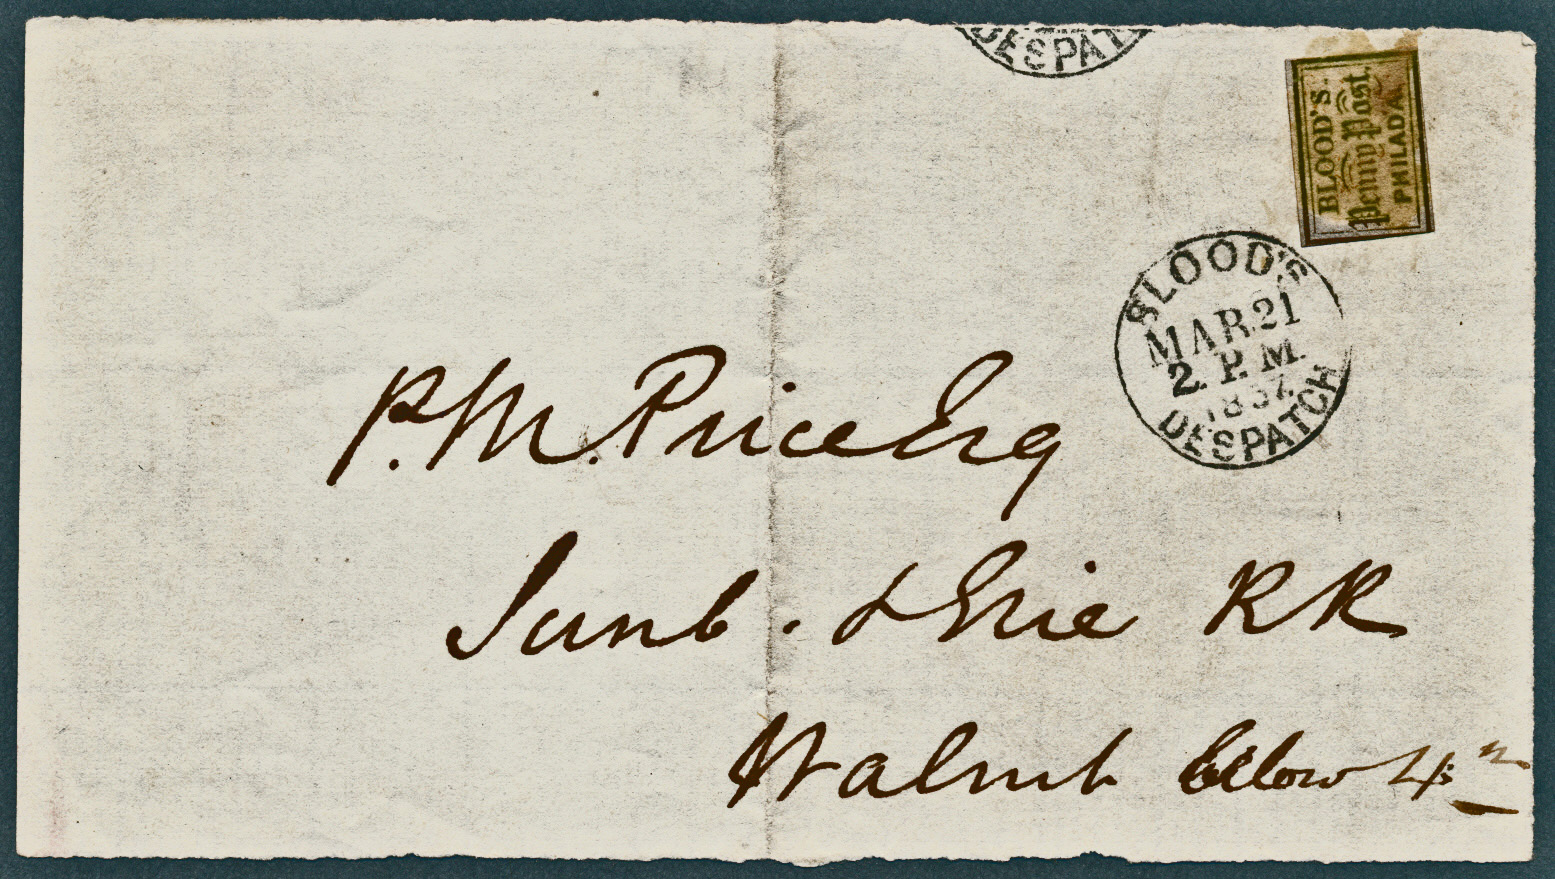 DESPATCH
BLOOD'S
Penny Post.
PHILADA
BLOOD'S
MAR 21
2. P. M.
1857
DESPATCH
P. M. Price Esq
Sunb. & Erie RR
Walnut below 4th